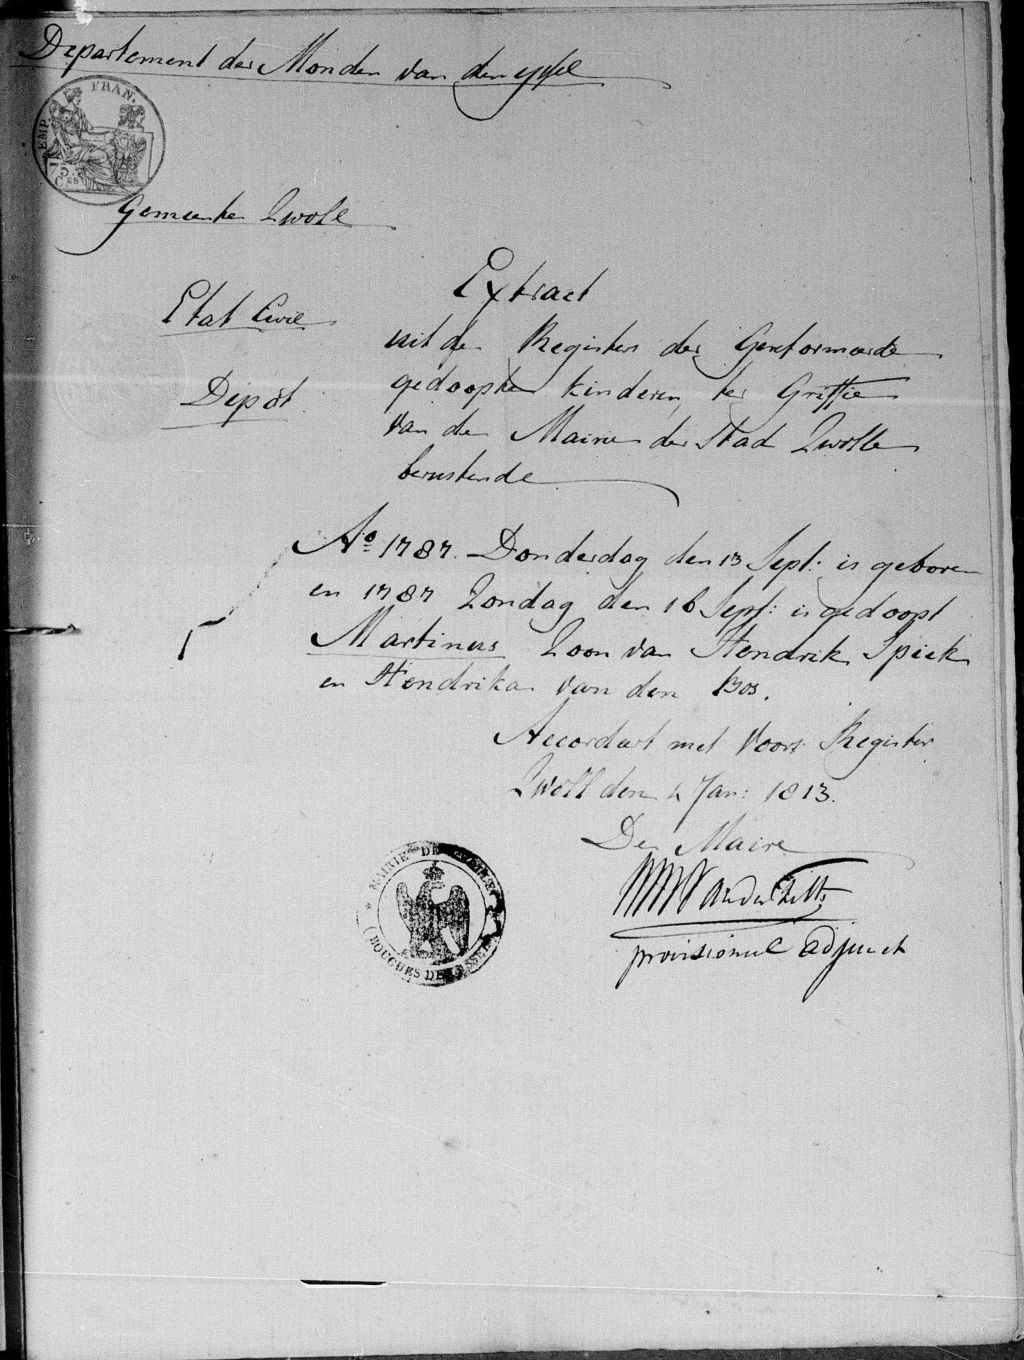 Departement der Monden van den yssel
EMP. FRAN.
75
CES
Gemeente Zwoll
Extract
Etat Civil
uit de Registers der Gereformeerde
Dépôt
gedoopte kinderen, ter Griffie
van de Mairie der Stad Zwolle
berustende
Ao 1787. Donderdag den 13 Sept: is geboren
en 1787 Zondag den 16 Sept: is gedoopt
Martinus Zoon van Hendrik Spiek
en Hendrika van den Bos.
Accordeert met Voors: Register
Zwoll den 4 Jan: 1813.
De Maire
MAIRIE DE ZWOLLE
(BOUCHES DE L'YSSEL)
provisioneel adjunct